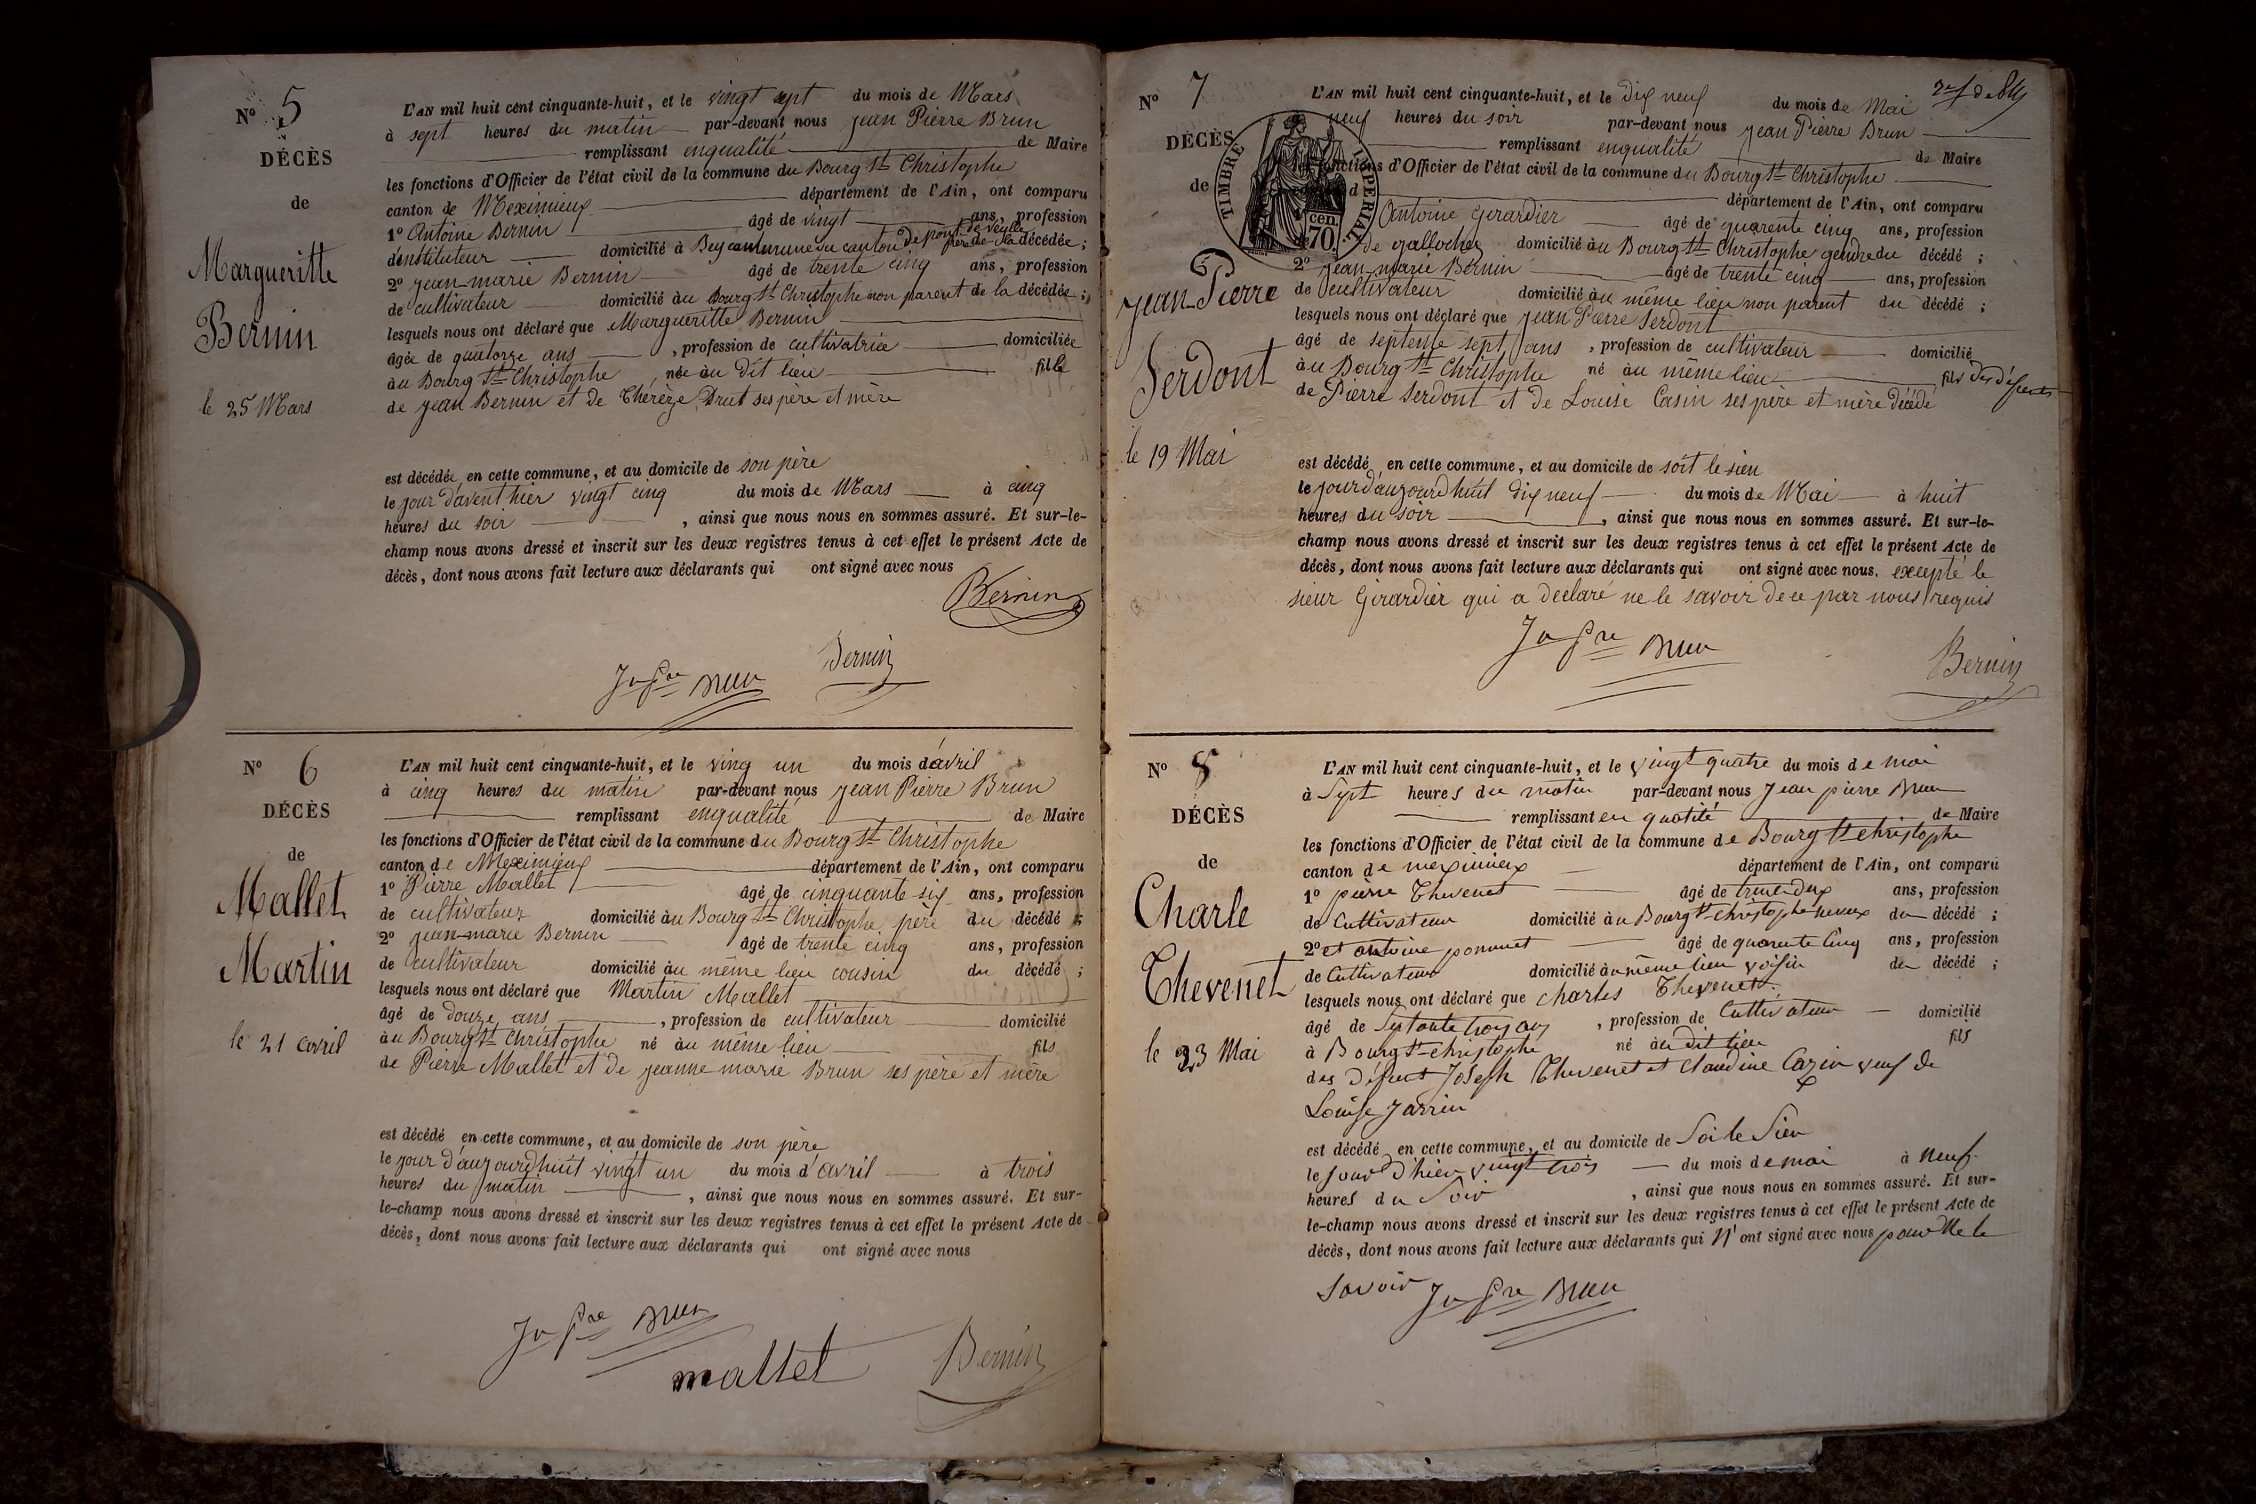 N° 5
DÉCÈS
de
Margueritte
Bernin
le 25 Mars
L'AN mil huit cent cinquante-huit, et le vingt sept du mois de Mars
à sept heures du matin par-devant nous jean Pierre Brun
remplissant enqualité de Maire
les fonctions d'Officier de l'état civil de la commune du Bourg St Christophe
canton de Meximieux département de l'Ain, ont comparu
1° Antoine Bernin âgé de vingt ans, profession
d'instituteur domicilié à Bey commune du canton de pont de veyle père de la décédée ;
2° jean-marie Bernin âgé de trente cinq ans, profession
de cultivateur domicilié au Bourg St Christophe non parent de la décédée ;
lesquels nous ont déclaré que Margueritte Bernin
âgée de quatorze ans, profession de cultivatrice domiciliée
au Bourg St Christophe née au dit lieu fille
de jean Bernin et de Thérèze Drut ses père et mère
est décédée en cette commune, et au domicile de son père
le jour d'avent hier vingt cinq du mois de Mars à cinq
heures du soir, ainsi que nous nous en sommes assuré. Et sur-le-
champ nous avons dressé et inscrit sur les deux registres tenus à cet effet le présent Acte de
décès, dont nous avons fait lecture aux déclarants qui ont signé avec nous
Bernin
Jn Pre Brun Bernin
N° 6
DÉCÈS
de
Mallet
Martin
le 21 avril
L'AN mil huit cent cinquante-huit, et le ving un du mois d'avril
à cinq heures du matin par-devant nous jean Pierre Brun
remplissant enqualité de Maire
les fonctions d'Officier de l'état civil de la commune du Bourg St Christophe
canton de Meximieux département de l'Ain, ont comparu
1° Pierre Mallet âgé de cinquante six ans, profession
de cultivateur domicilié au Bourg St Christophe père du décédé ;
2° jean-marie Bernin âgé de trente cinq ans, profession
de cultivateur domicilié au même lieu cousin du décédé ;
lesquels nous ont déclaré que Martin Mallet
âgé de douze ans, profession de cultivateur domicilié
au Bourg St Christophe né au même lieu fils
de Pierre Mallet et de jeanne marie Brun ses père et mère
est décédé en cette commune, et au domicile de son père
le jour d'aujourdhuit vingt un du mois d'avril à trois
heures du matin, ainsi que nous nous en sommes assuré. Et sur-
le-champ nous avons dressé et inscrit sur les deux registres tenus à cet effet le présent Acte de
décès, dont nous avons fait lecture aux déclarants qui ont signé avec nous
Jn Pre Brun
mallet Bernin
N° 7
DÉCÈS
de
jean Pierre
Serdont
le 19 Mai
TIMBRE IMPERIAL
70 cen.
L'AN mil huit cent cinquante-huit, et le dix neuf du mois de Mai
neuf heures du soir par-devant nous jean Pierre Brun
remplissant enqualité de Maire
fonctions d'Officier de l'état civil de la commune du Bourg St Christophe
département de l'Ain, ont comparu
Antoine Girardier âgé de quarente cinq ans, profession
de gallocher domicilié au Bourg St Christophe gendre du décédé ;
2° jean-marie Bernin âgé de trente cinq ans, profession
de cultivateur domicilié au même lieu non parent du décédé ;
lesquels nous ont déclaré que jean Pierre Serdont
âgé de septente sept ans, profession de cultivateur domicilié
au Bourg St Christophe né au même lieu fils des défunts
de Pierre Serdont et de Louise Casin ses père et mère décédé
est décédé en cette commune, et au domicile de soit le sien
le jourd'aujourdhuit dix neuf du mois de Mai à huit
heures du soir, ainsi que nous nous en sommes assuré. Et sur-le-
champ nous avons dressé et inscrit sur les deux registres tenus à cet effet le présent Acte de
décès, dont nous avons fait lecture aux déclarants qui ont signé avec nous. excepté le
sieur Girardier qui a declaré ne le savoir de ce par nous requis
Jn Pre Brun
Bernin
N° 8
DÉCÈS
de
Charle
Thevenet
le 23 Mai
L'AN mil huit cent cinquante-huit, et le vingt quatre du mois de mai
à Sept heures du matin par-devant nous Jean pierre Brun
remplissant en qualité de Maire
les fonctions d'Officier de l'état civil de la commune de Bourg St christophe
canton de meximieux département de l'Ain, ont comparu
1° pierre Thevenet âgé de trente deux ans, profession
de Cultivateur domicilié au Bourg St christophe neveux du décédé ;
2° et antoine pommet âgé de quarente Cinq ans, profession
de Cultivateur domicilié au même lieu voisin du décédé ;
lesquels nous ont déclaré que charles Thevenet
âgé de Septante trois ans, profession de Cultivateur domicilié
à Bourg St christophe né au dit lieu fils
des défunt Joseph Thevenet et Claudine Cazin veuf de
Louise Jarrin
est décédé en cette commune, et au domicile de Soi le Sien
le Jour d'hier vingt trois du mois de mai à neuf
heures du Soir, ainsi que nous nous en sommes assuré. Et sur-
le-champ nous avons dressé et inscrit sur les deux registres tenus à cet effet le présent Acte de
décès, dont nous avons fait lecture aux déclarants qui N'ont signé avec nous pour ne le
Savoir Jn Pre Brun